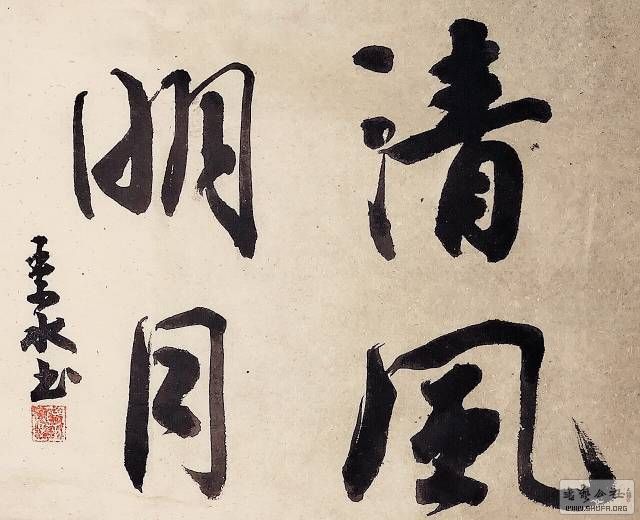 清風
明月
水书
WWW.SHUFA.ORG